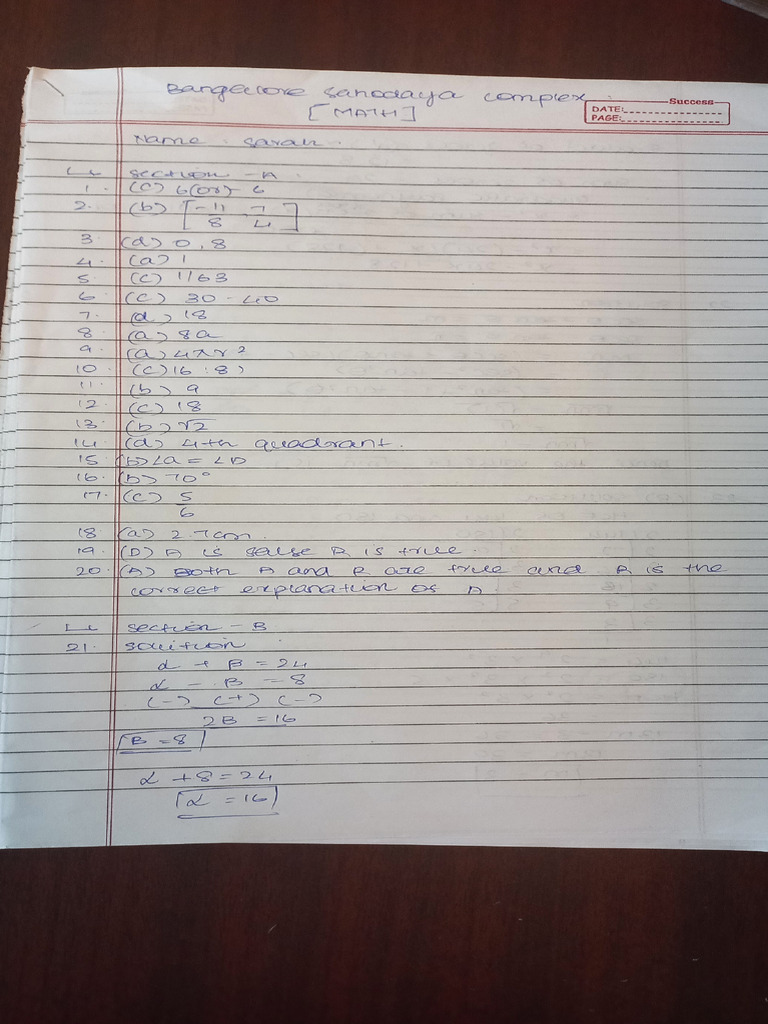 Bangalore Sahodaya complex
[MATH]
Success
DATE:
PAGE:
Name : Sarah
section - A
1. (c) 6 (or) 6
2. (b) [-11 7
8 4]
3. (d) 0, 8
4. (a) 1
5. (c) 1/63
6. (c) 30 - 40
7. (d) 18
8. (a) 8a
9. (a) 4πr²
10. (c) 16 : 8)
11. (b) 9
12. (c) 18
13. (b) √2
14. (d) 4th quadrant.
15. (b) ∠a = ∠D
16. (b) 70°
17. (c) 5
6
18. (a) 2.7cm.
19. (D) A is false R is true.
20. (A) Both A and R are true and R is the
correct explanation of A
section - B
21. solution
α + β = 24
α - β = 8
(-) (+) (-)
2β = 16
β = 8
α + 8 = 24
α = 16